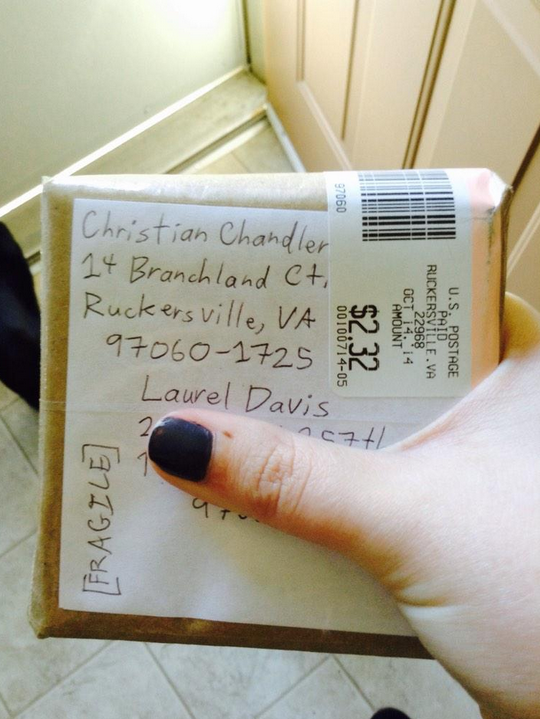 Christian Chandler
14 Branchland Ct.
Ruckersville, VA
97060-1725
Laurel Davis
2
257th
1
[FRAGILE]
97060
U.S. POSTAGE
PAID
RUCKERSVILLE.VA
22968
OCT 14. 14
AMOUNT
$2.32
00100714-05